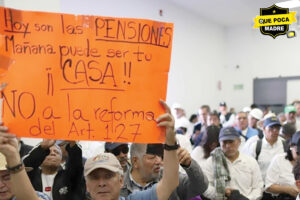 Hoy son las PENSIONES
Mañana puede ser tu
¡¡CASA!!
NO a la reforma
del Art. 127
QUE POCA
MADRE